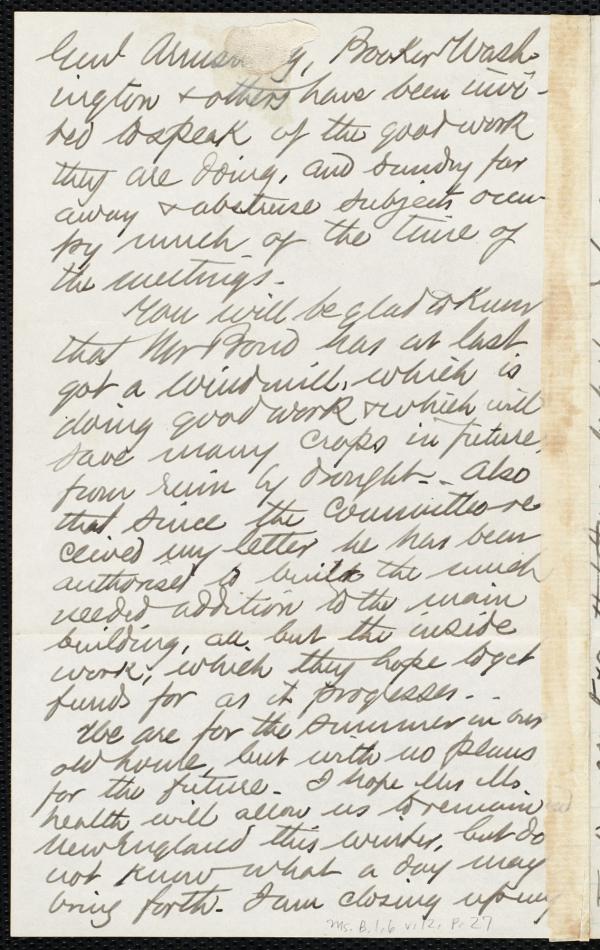 Genl Armst g, Booker Wash-
ington & others have been invi-
ted to speak of the good work
they are doing, and sundry far
away & abstruse subjects occu-
py much of the time of
the meetings.
You will be glad to know
that Mr Bond has at last
got a windmill, which is
doing good work & which will
save many crops in future,
from ruin by drought - Also
that since the Committee re
ceived my letter he has been
authorised to build the much
needed addition to the main
building, all but the inside
work, which they hope to get
funds for as it progresses. -
We are for the summer in our
old home, but with no plans
for the future. I hope Mrs Ms.
health will allow us to remain in
New England this winter, but do
not know what a day may
bring forth. I am closing up my
Ms. B.1.6 v.12, p.27